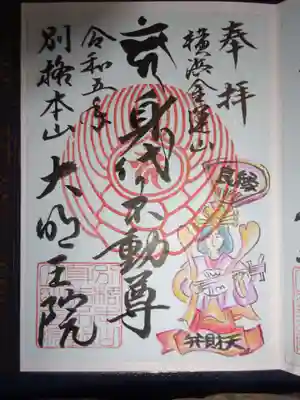 奉拝
横浜金運山
身代り不動尊
令和五年
別格本山 大明王院
良縁
弁財天